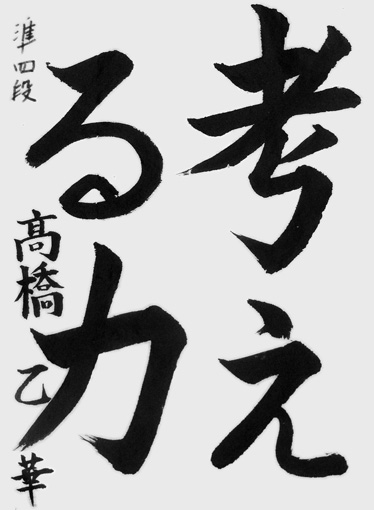 考え
る力
準四段
髙橋乙華